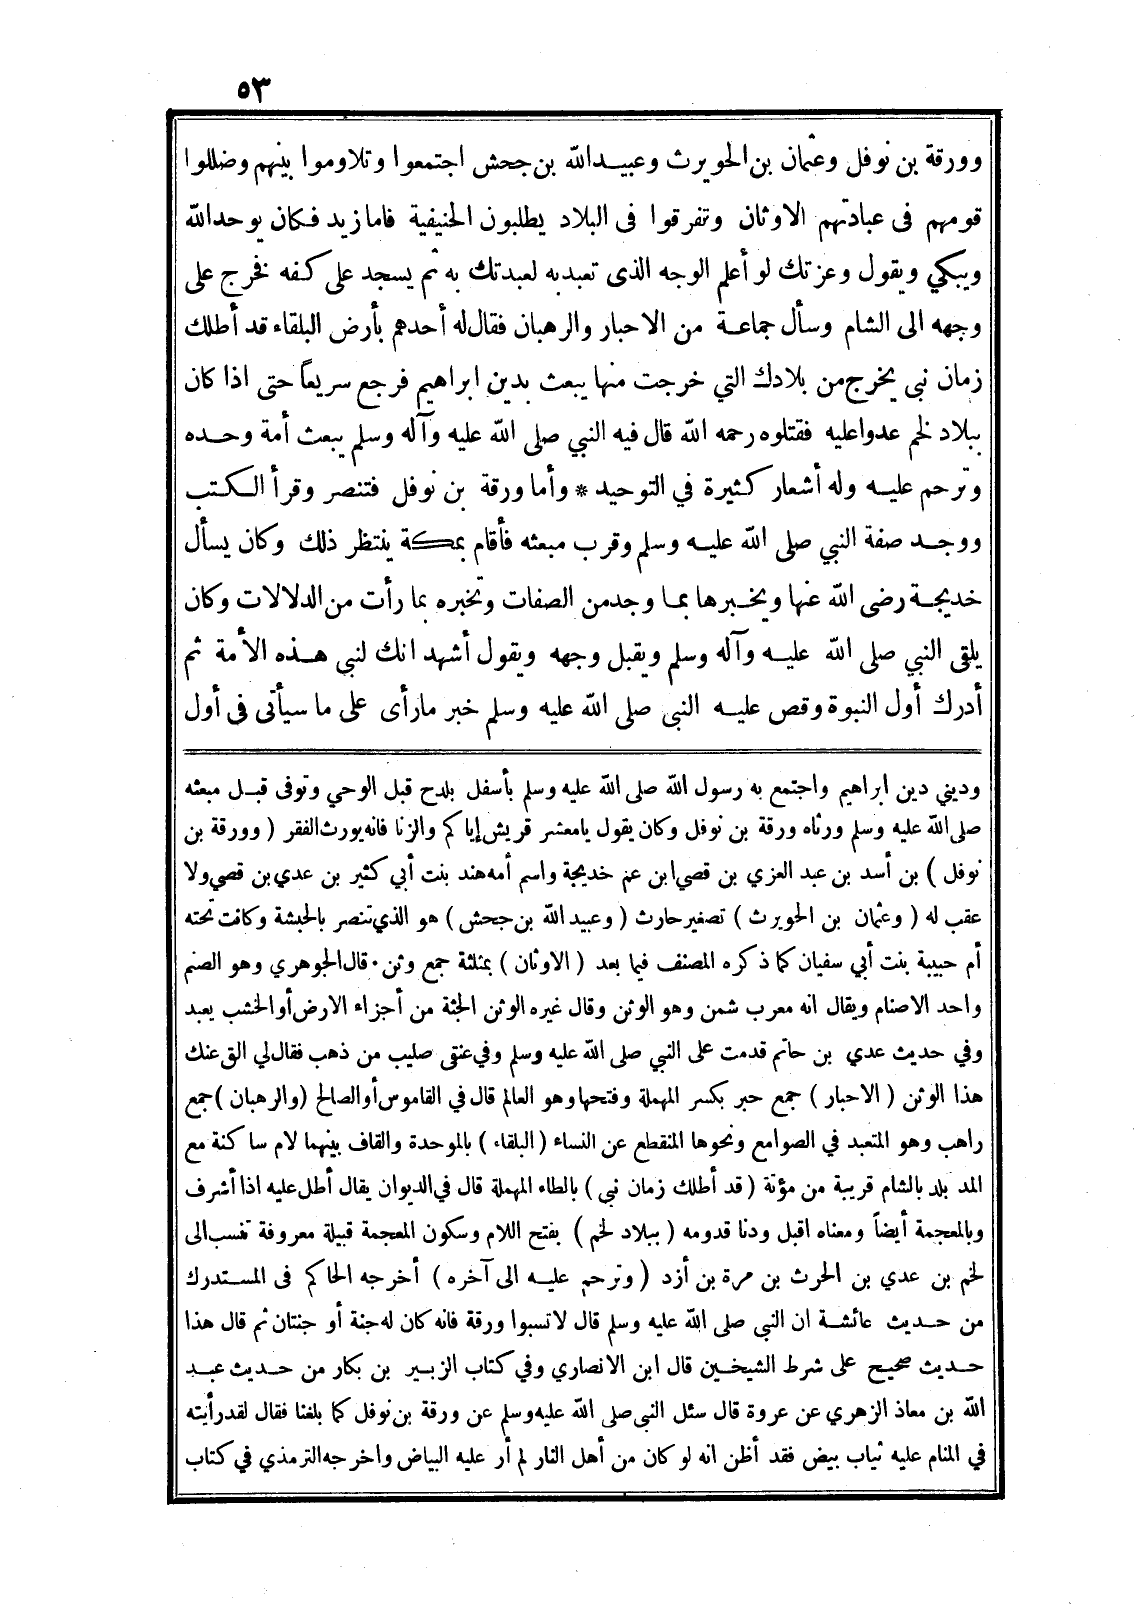 ٥٣
وورقة بن نوفل وعثمان بن الحويرث وعبيد الله بن جحش اجتمعوا وتلاوموا بينهم وضللوا
قومهم فى عبادتهم الاوثان وتفرقوا فى البلاد يطلبون الحنيفية فاما زيد فكان يوحد الله
ويبكي ويقول وعزتك لو أعلم الوجه الذى تعبد به لعبدتك به ثم يسجد على كفه فخرج على
وجهه الى الشام وسأل جماعة من الاحبار والرهبان فقال له أحدهم بأرض البلقاء قد أطلك
زمان نبى يخرج من بلادك التي خرجت منها يبعث بدين ابراهيم فرجع سريعاً حتى اذا كان
ببلاد لخم عدوا عليه فقتلوه رحمه الله قال فيه النبي صلى الله عليه وآله وسلم يبعث أمة وحده
وترحم عليه وله أشعار كثيرة في التوحيد * وأما ورقة بن نوفل فتنصر وقرأ الكتب
ووجد صفة النبي صلى الله عليه وسلم وقرب مبعثه فأقام بمكة ينتظر ذلك وكان يسأل
خديجة رضى الله عنها ويخبرها بما وجد من الصفات وتخبره بما رأت من الدلالات وكان
يلقى النبي صلى الله عليه وآله وسلم ويقبل وجهه ويقول أشهد انك لنبي هذه الأمة ثم
أدرك أول النبوة وقص عليه النبى صلى الله عليه وسلم خبر ما رأى على ما سيأتى فى أول
وديني دين ابراهيم واجتمع به رسول الله صلى الله عليه وسلم بأسفل بلدح قبل الوحي وتوفى قبل مبعثه
صلى الله عليه وسلم ورثاه ورقة بن نوفل وكان يقول يامعشر قريش إياكم والزنا فانه يورث الفقر ( وورقة بن
نوفل ) بن أسد بن عبد العزي بن قصي ابن عم خديجة واسم أمه هند بنت أبي كثير بن عدي بن قصي ولا
عقب له ( وعثمان بن الحويرث ) تصغير حارث ( وعبيد الله بن جحش ) هو الذي تنصر بالحبشة وكانت تحته
أم حبيبة بنت أبي سفيان كما ذكره المصنف فيما بعد ( الاوثان ) بمثلثة جمع وثن • قال الجوهري وهو الصنم
واحد الاصنام ويقال انه معرب شمن وهو الوثن وقال غيره الوثن الجثة من أجزاء الارض أو الخشب يعبد
وفي حديث عدي بن حاتم قدمت على النبي صلى الله عليه وسلم وفي عنقى صليب من ذهب فقال لي الق عنك
هذا الوثن ( الاحبار ) جمع حبر بكسر المهملة وفتحها وهو العالم قال في القاموس أو الصالح ( والرهبان ) جمع
راهب وهو المتعبد في الصوامع ونحوها المنقطع عن النساء ( البلقاء ) بالموحدة والقاف بينهما لام ساكنة مع
المد بلد بالشام قريبة من مؤتة ( قد أطلك زمان نبي ) بالطاء المهملة قال في الديوان يقال أطل عليه اذا أشرف
وبالمعجمة أيضاً ومعناه اقبل ودنا قدومه ( ببلاد لخم ) بفتح اللام وسكون المعجمة قبيلة معروفة تنسب الى
لخم بن عدي بن الحرث بن مرة بن أزد ( وترحم عليه الى آخره ) أخرجه الحاكم فى المستدرك
من حديث عائشة ان النبي صلى الله عليه وسلم قال لا تسبوا ورقة فانه كان له جنة أو جنتان ثم قال هذا
حديث صحيح على شرط الشيخين قال ابن الانصاري وفي كتاب الزبير بن بكار من حديث عبد
الله بن معاذ الزهري عن عروة قال سئل النبى صلى الله عليه وسلم عن ورقة بن نوفل كما بلغنا فقال لقد رأيته
في المنام عليه ثياب بيض فقد أظن انه لو كان من أهل النار لم أر عليه البياض واخرجه الترمذي في كتاب